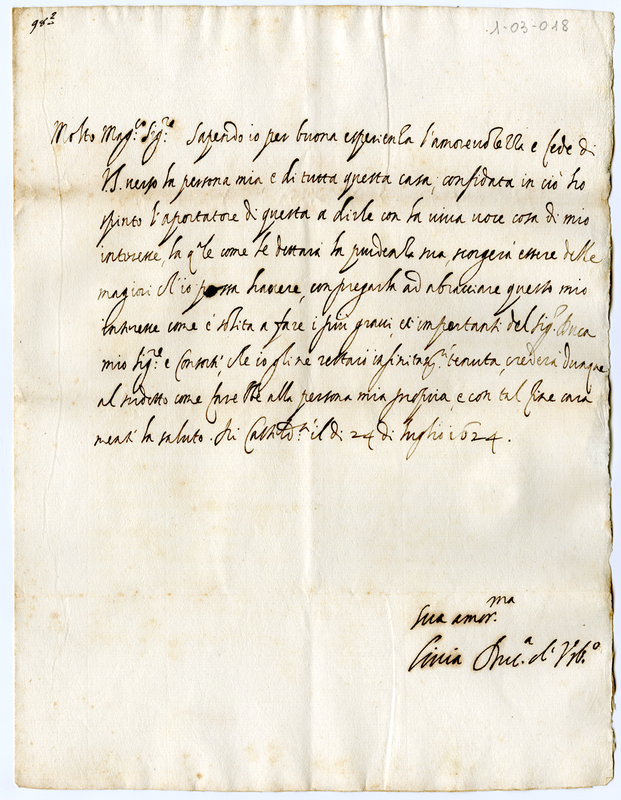 98²
1-03-018
Molto Mag.co Sig.re Sapendo io per buona esperienza l'amorevolezza e fede di
VS. verso la persona mia e di tutta questa casa, confidata in ciò ho
spinto l'aportatore di questa a dirle con la viva voce cosa di mio
interesse, la q.le come le dettarà la prudenza sua, scorgerà essere delle
magiori ch'io possa havere, con pregarla ad abracciare questo mio
interesse come è solita a fare i più gravi, et importanti del Sig.r Duca
mio Sig.re e Consorte che io gli ne restarò infinitam.te tenuta, crederà dunque
al sudetto come farebbe alla persona mia propria, e con tal fine cara
mente la saluto. Di il dì 24 di luglio 1624.
Sua amor.ma
Livia Duc.a d'Urb.o